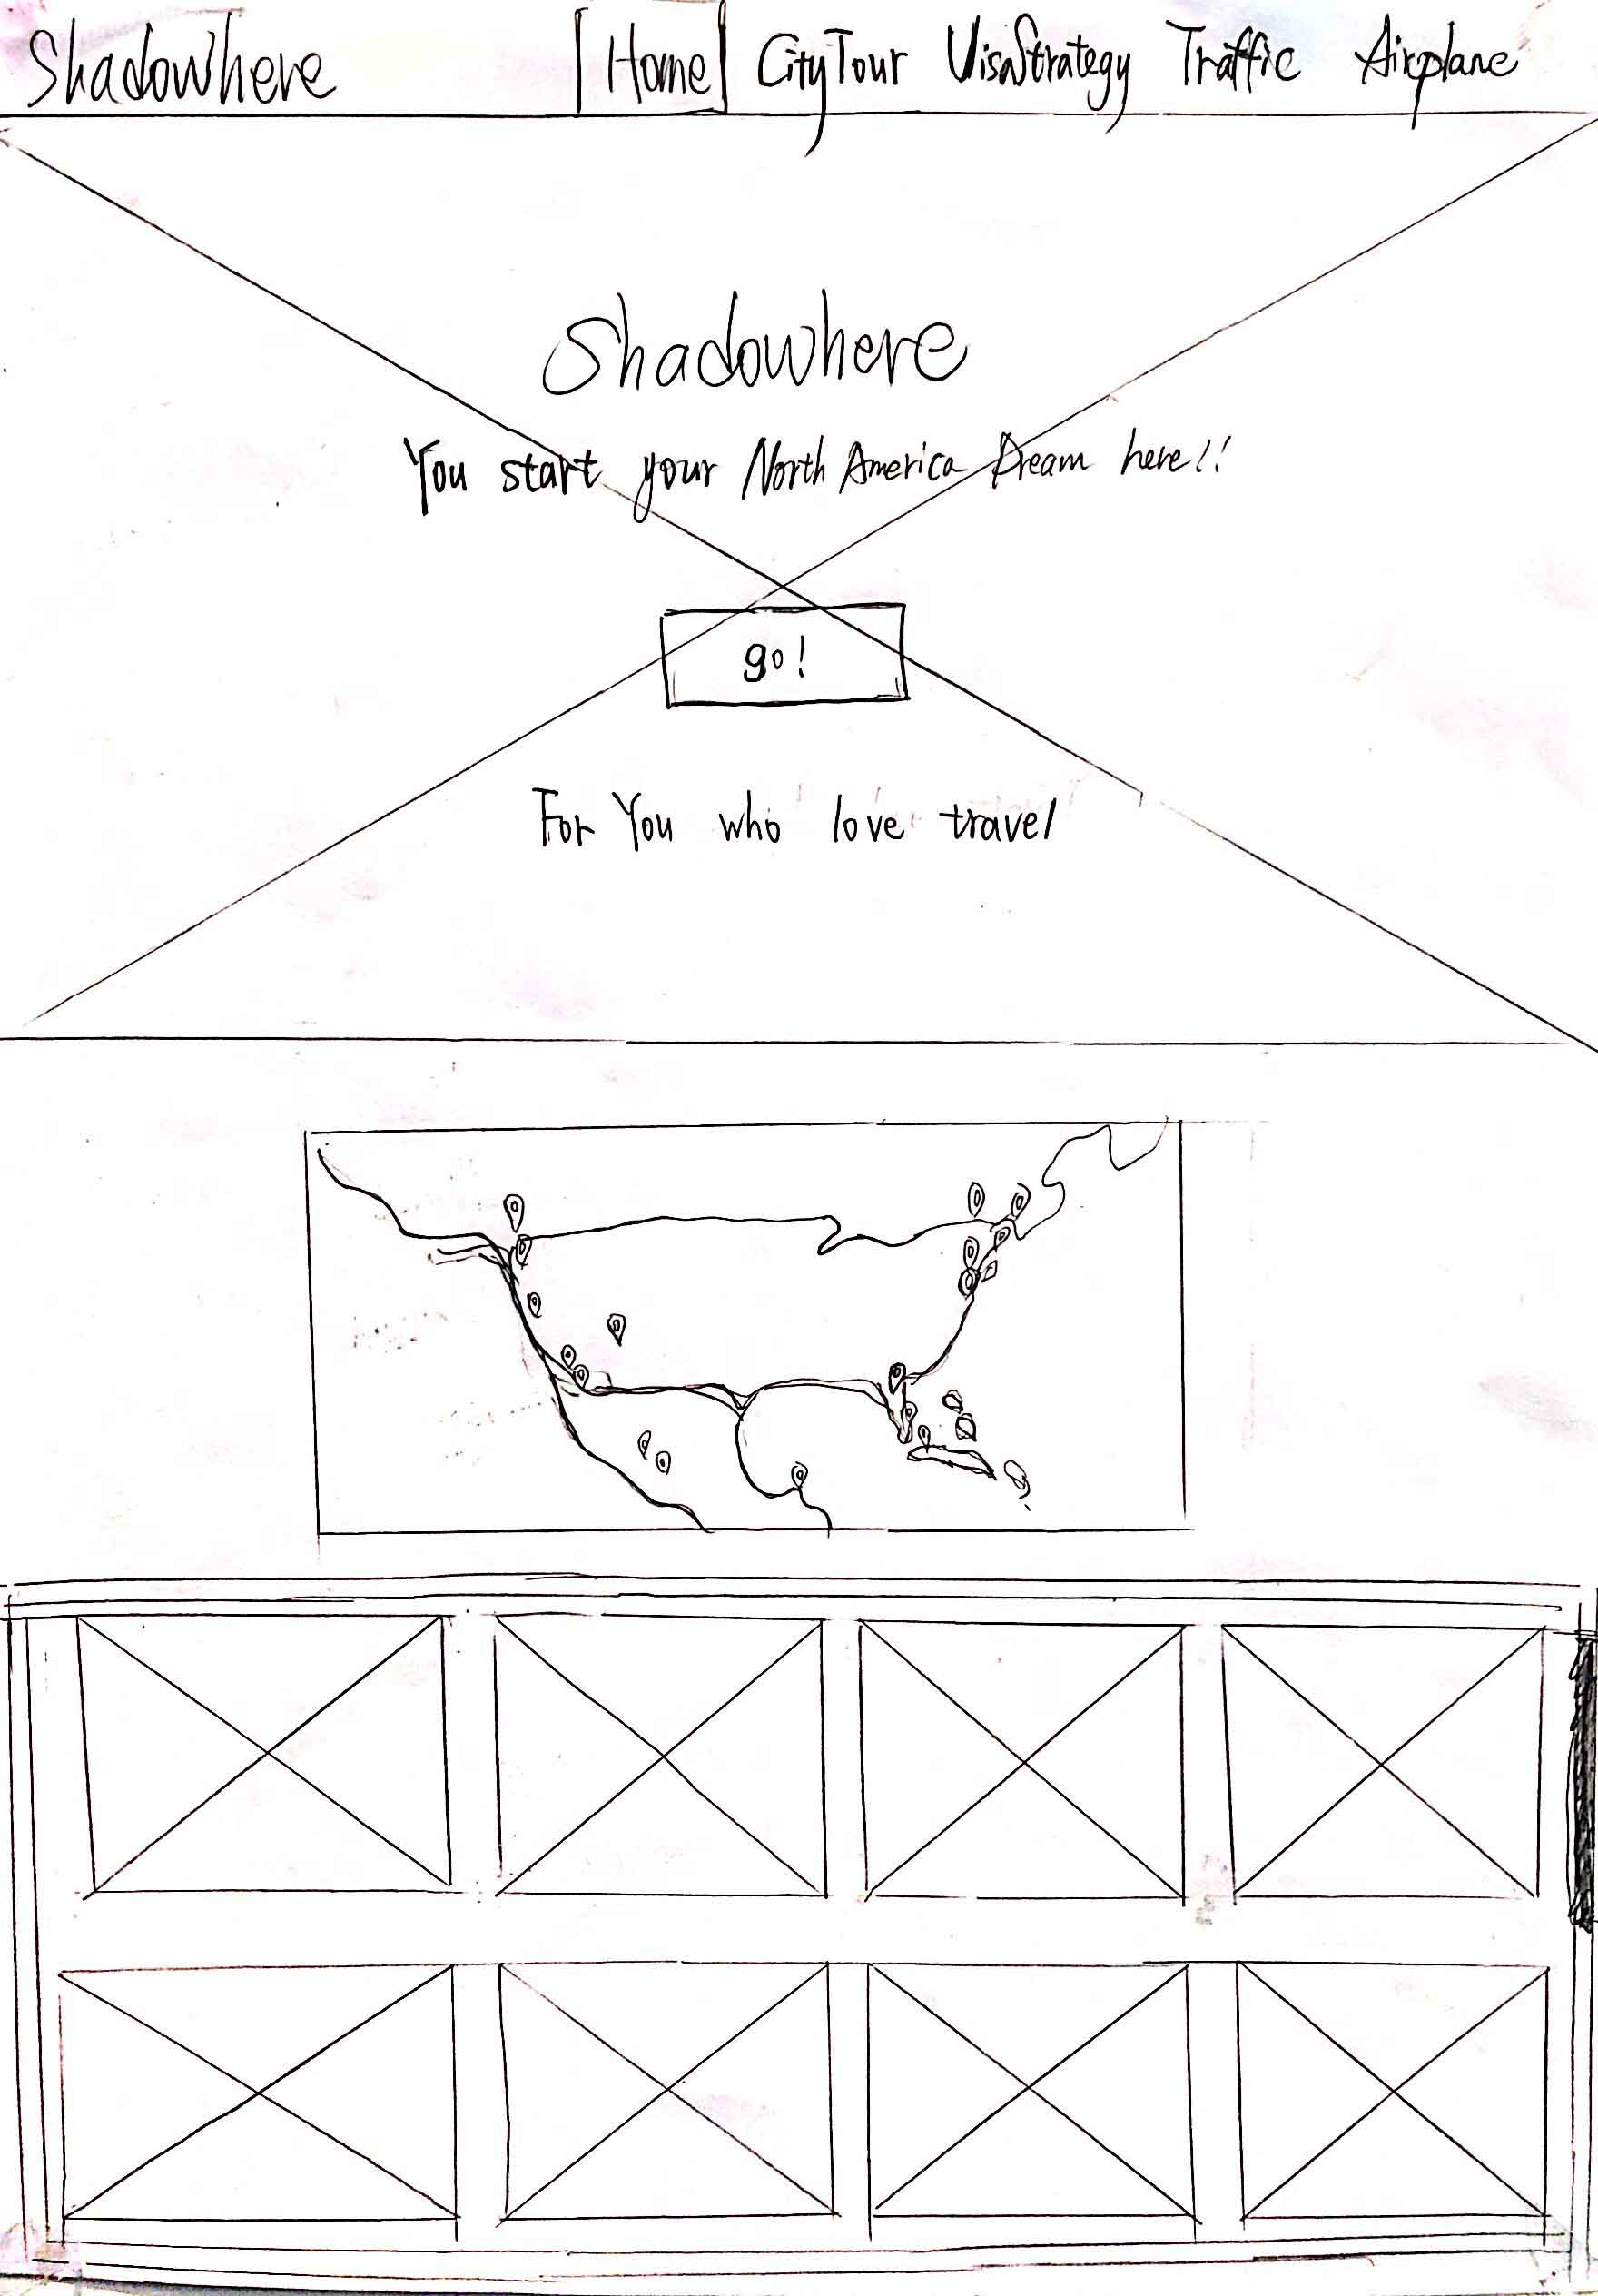 Shadowhere Home CityTour VisaStrategy Traffic Airplane
Shadowhere
You start your North America Dream here!!
go!
For You who love travel